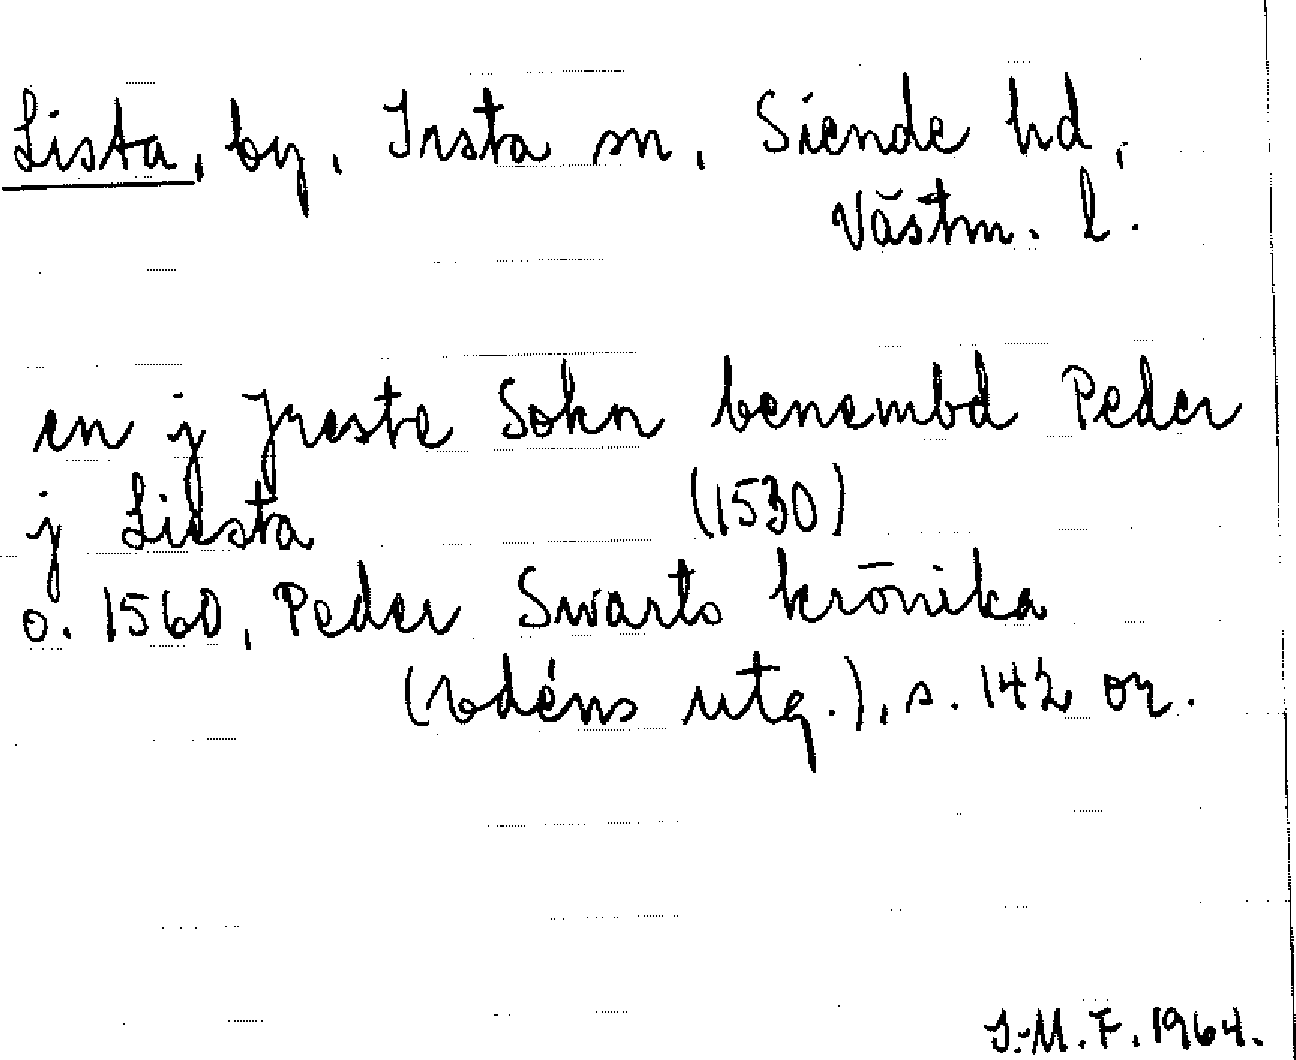 Lista, by, Irsta sn, Siende hd,
Västm. l.
en j Jreste Sokn benembd Peder
j Liesta (1530)
o. 1560, Peder Swarts krönika
(Edéns utg.), s. 142 or.
J.M.F. 1964.